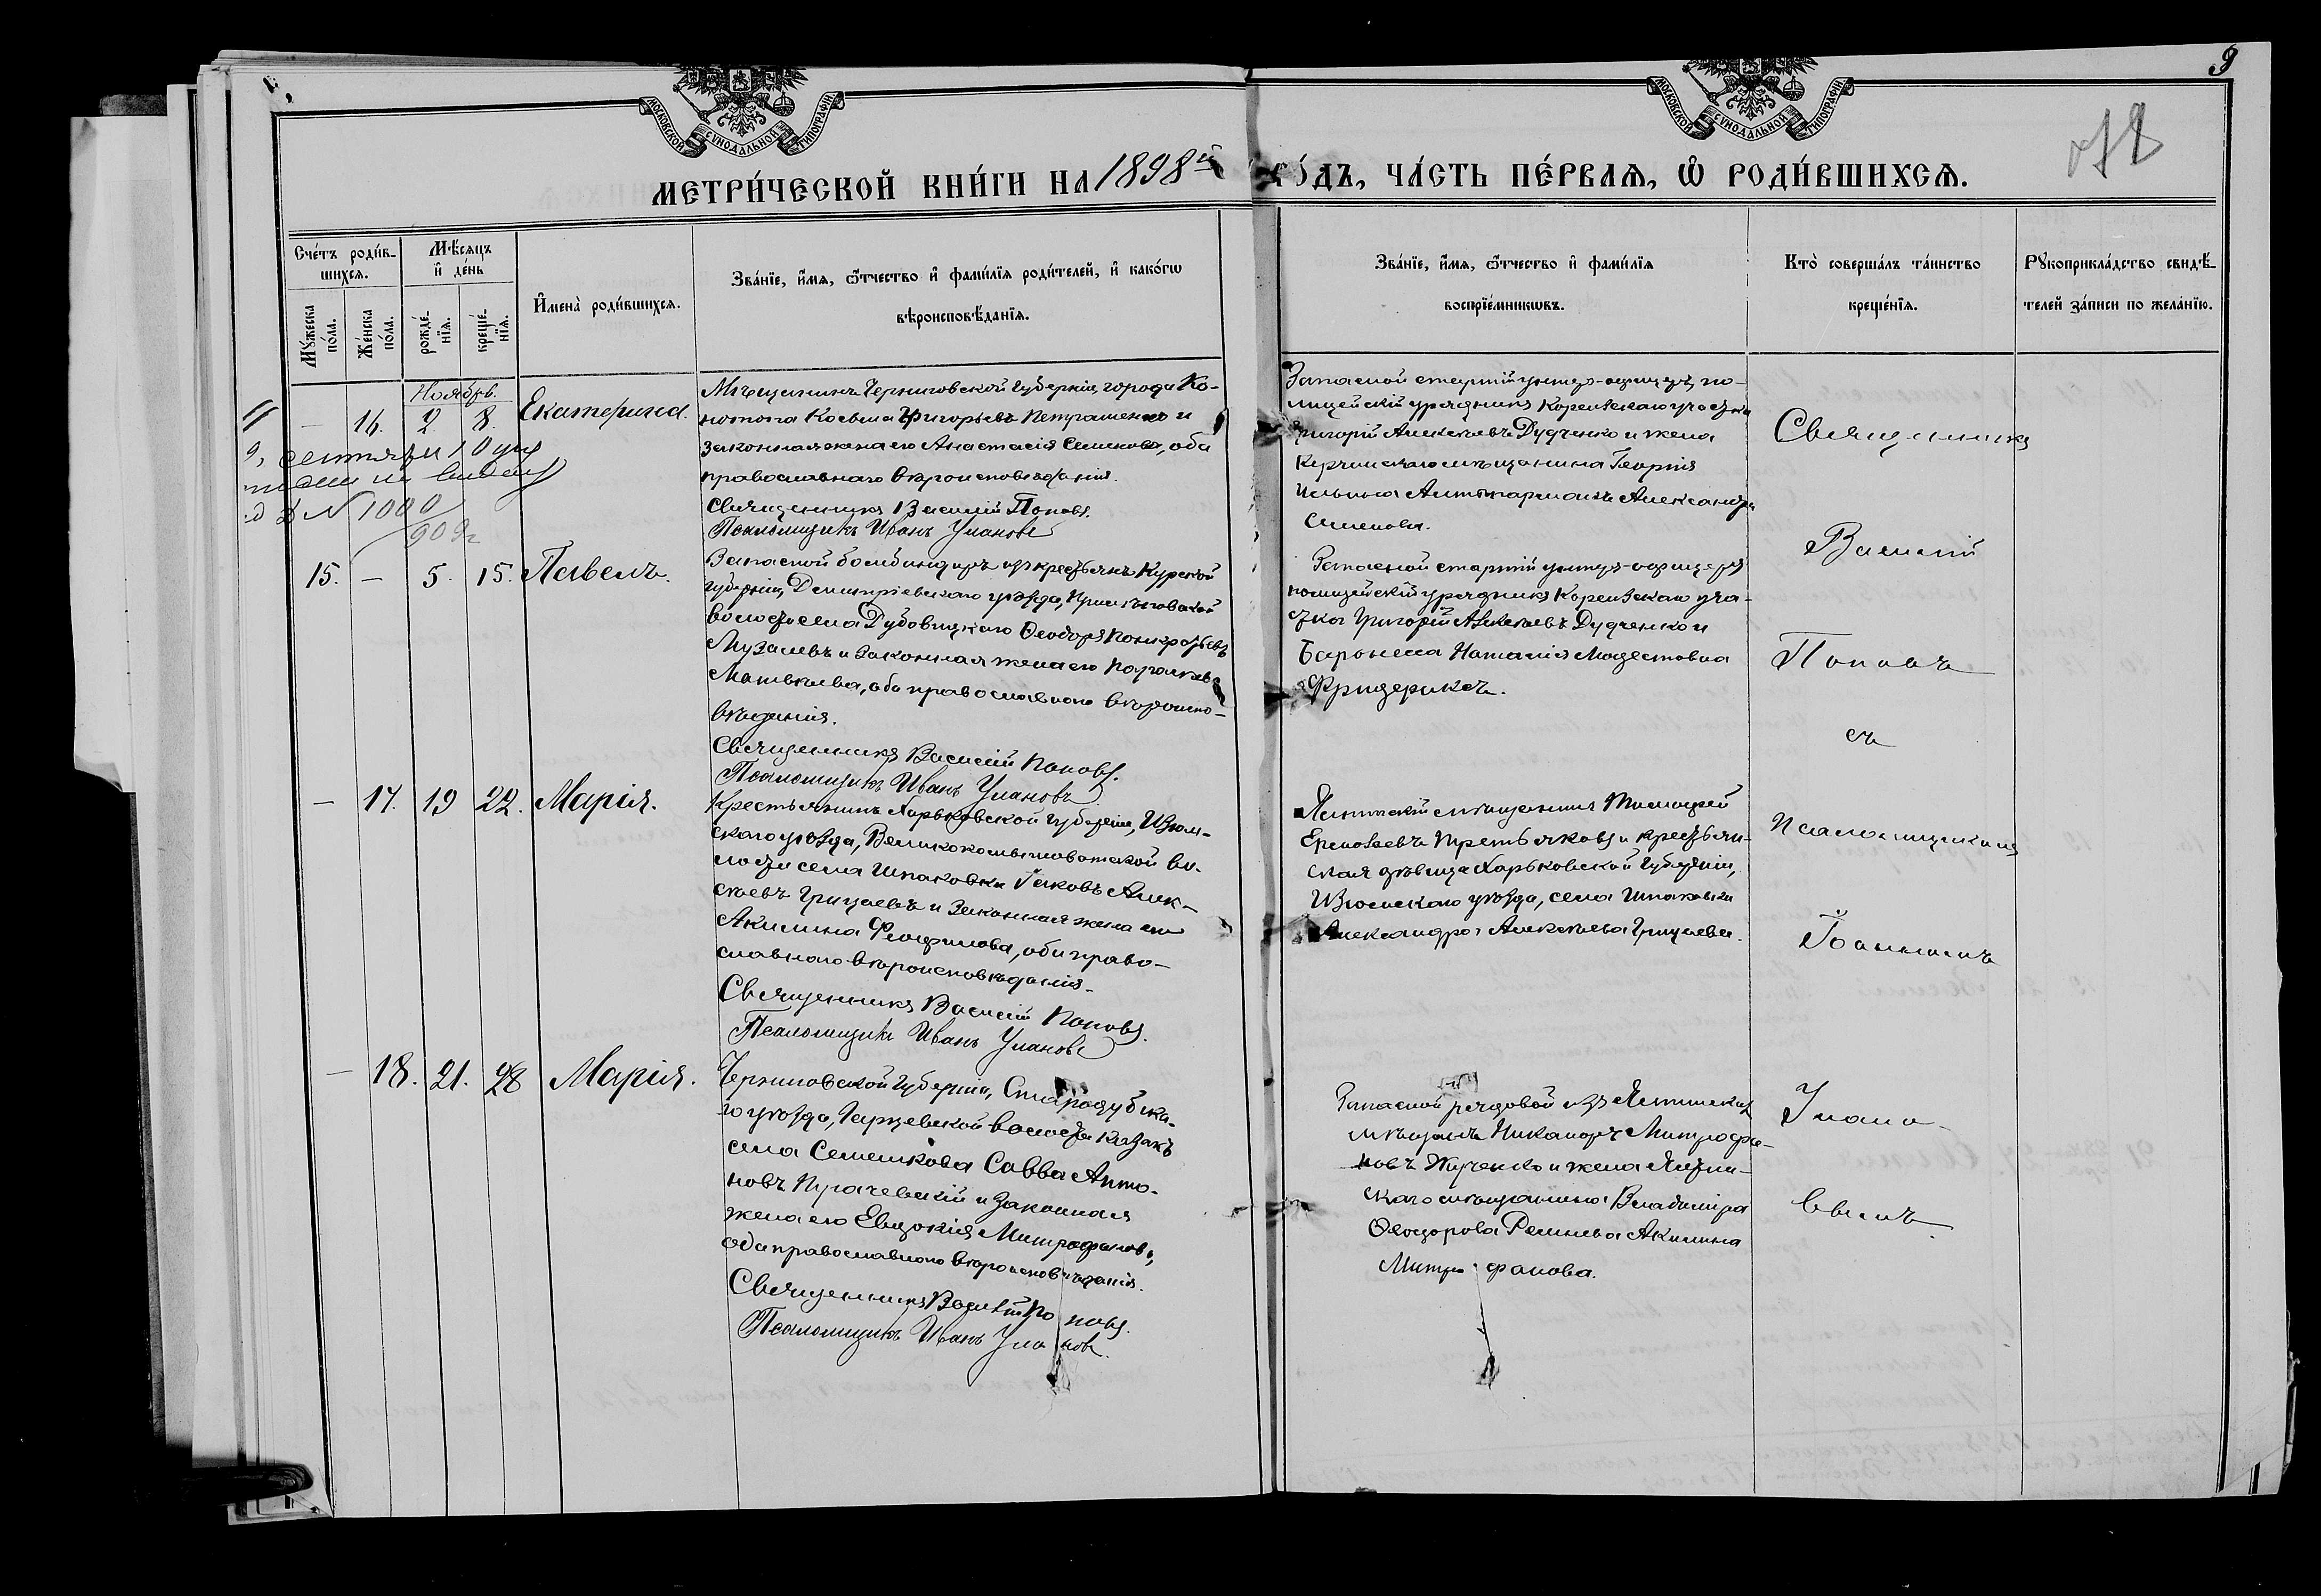 9
МОСКОВСКОЙ СѴНОДАЛЬНОЙ ТИПОГРАФІИ
МОСКОВСКОЙ СѴНОДАЛЬНОЙ ТИПОГРАФІИ
МЕТРИ́ЧЕСКОЙ КНИ́ГИ НА 1898й ГО́ДЪ, ЧА́СТЬ ПЕ́РВАѦ, Ѿ РОДИ́ВШИХСѦ.
Сче́тъ роди́в-
шихсѧ.
Мꙋ́жеска
по́ла.
Же́нска
по́ла.
Мѣ́сѧцъ
и҆ де́нь
рожде́-
нїѧ.
креще́-
нїѧ.
И҆мена̀ роди́вшихсѧ.
Зва́нїе, и҆́мѧ, ѻ҆́тчество и҆ фами́лїѧ роди́телей, и҆ како́гѡ
вѣроисповѣ́данїѧ.
Зва́нїе, и҆́мѧ, ѻ҆́тчество и҆ фами́лїѧ
воспрїе́мникѡвъ.
Кто̀ соверша́лъ та́инство
креще́нїѧ.
Рꙋкоприкла́дство свидѣ́-
телей за́писи по жела́нїю.
Ноябрь.
— 16. 2 8. Екатерина.
Мѣщанинъ Черниговской губерніи, города Ко-
нотопа Косьма Григорьевъ Петрашенко и
законная жена его Анастасія Семенова, оба
православнаго вѣроисповѣданія.
Священникъ Василій Поповъ.
Псаломщикъ Иванъ Улановъ
Запасной старшій унтеръ-офицеръ, по-
лицейскій урядникъ Кореизскаго участка
Григорій Алексѣевъ Дудченко и жена
Керчинскаго мѣщанина Георгія
Ильина Александра
Семенова.
сентября 10 дня
N 1000
909 г
15. — 5. 15. Павелъ.
Запасной бомбандиръ изъ крестьянъ Курской
губерніи, Дмитріевскаго уѣзда,
волости села Дубовицкаго Ѳеодоръ Понкратьевъ
Музалевъ и законная жена его Параскева
Матвѣева, оба православнаго вѣроиспо-
вѣданія.
Священникъ Василій Поповъ.
Псаломщикъ Иванъ Улановъ
Запасной старшій унтеръ-офицеръ
полицейскій урядникъ Кореизскаго уча-
стка Григорій Алексѣевъ Дудченко и
Баронесса Наталія Модестовна
Фридериксъ.
— 17. 19 22. Марія.
Крестьянинъ Харьковской губерніи, Изюм-
скаго уѣзда, Великокомышеватской во-
лости села Шпаковки Іаковъ Алек-
сѣевъ Грицаевъ и законная жена его
Акилина Феофилова, оба право-
славнаго вѣроисповѣданія.
Священникъ Василій Поповъ.
Псаломщикъ Иванъ Улановъ
Ялтинскій мѣщанинъ Тимофей
Ермолаевъ Третьяковъ и крестьян-
ская дѣвица Харьковской губерніи,
Изюмскаго уѣзда, села Шпаковки
Александра Алексѣева Грицаева.
— 18. 21. 28 Марія.
Черниговской губерніи, Стародубска-
го уѣзда, волости казакъ
села Семешкова Савва Анто-
новъ Пугачевскій и законная
жена его Евдокія Митрофанова,
оба православнаго вѣроисповѣданія.
Священникъ Василій Поповъ.
Псаломщикъ Иванъ Улановъ.
Запасной рядовой изъ Ялтинскихъ
мѣщанъ Никаноръ Митрофа-
новъ Жученко и жена Ялтин-
скаго мѣщанина Владиміра
Ѳеодорова Репнева Акилина
Митрофанова.
Священникъ
Василій
Поповъ
съ
псаломщикомъ
Іоанномъ
Улано-
вымъ.